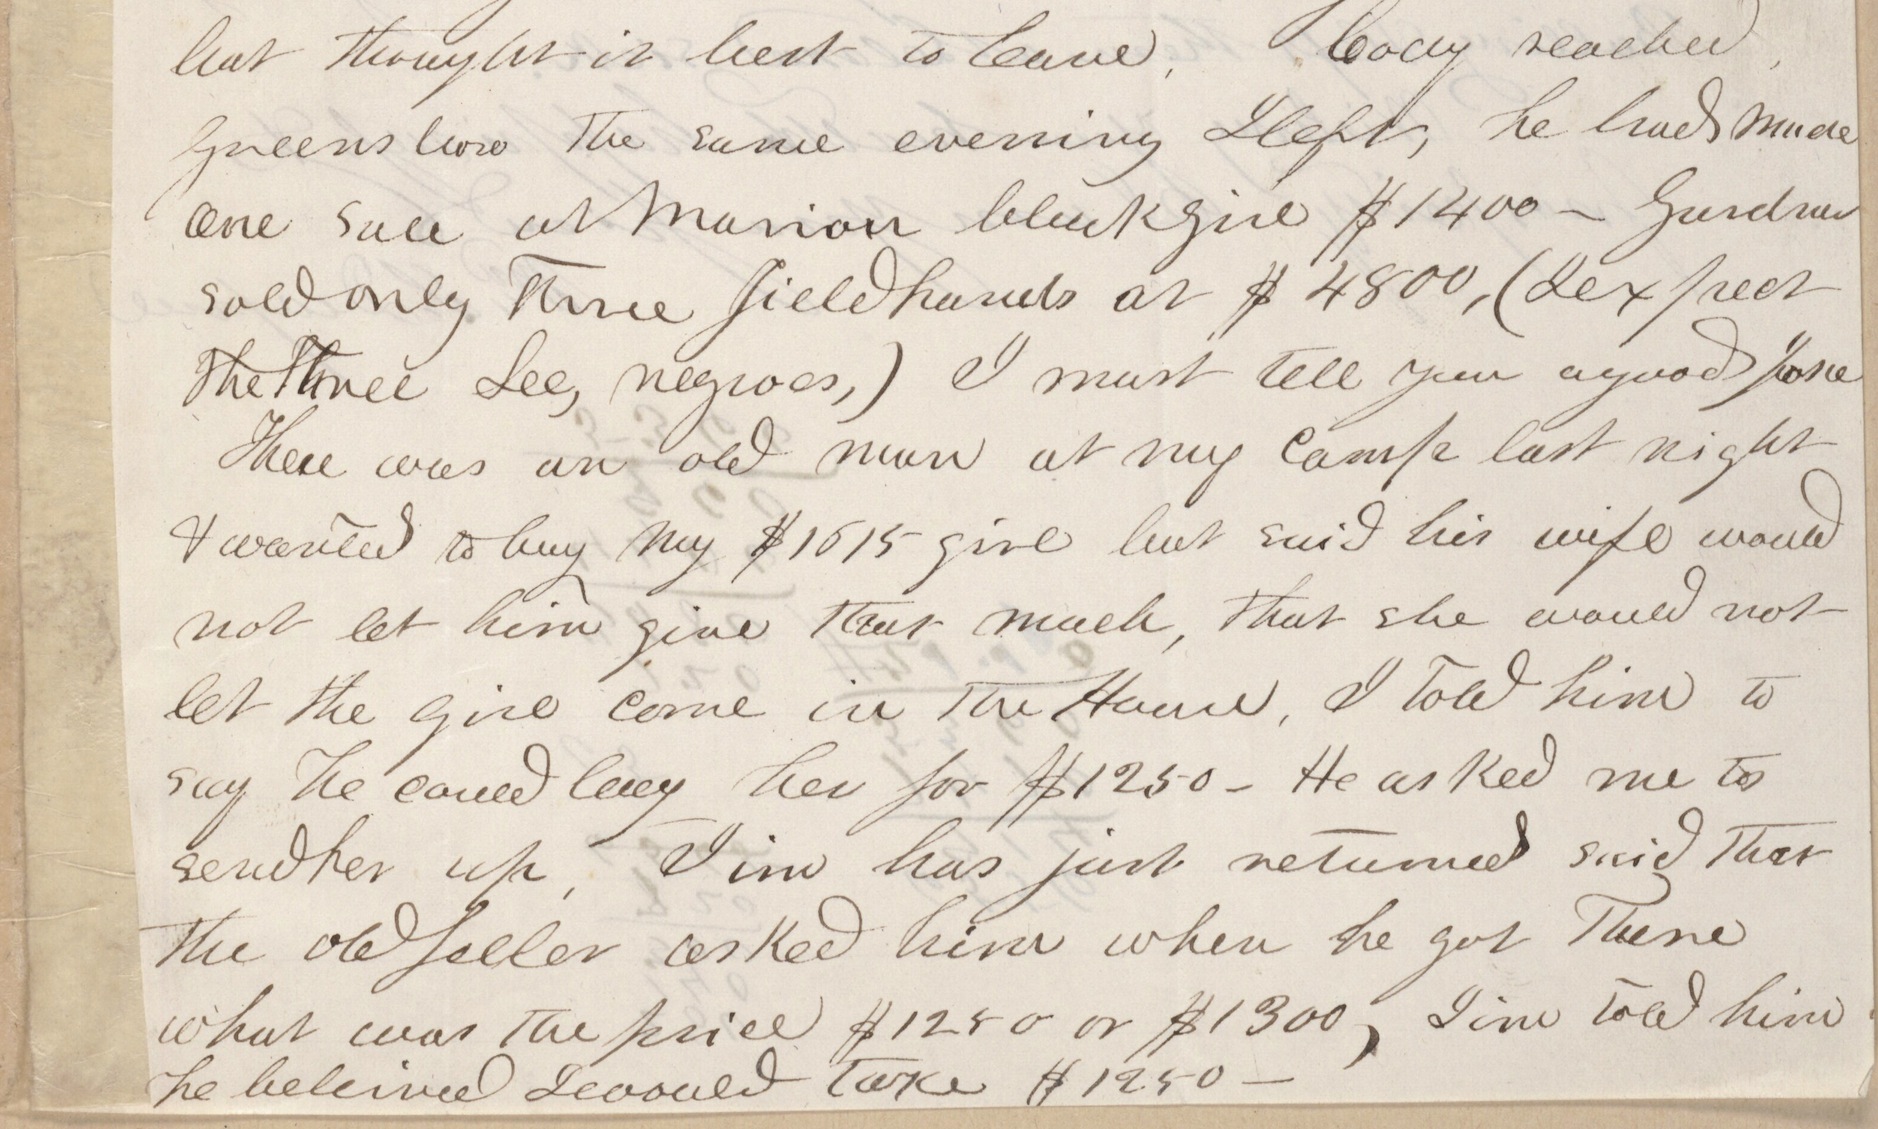 but thought it best to leave. Cocky reached
Greensboro the same evening I left, he had made
one sale at Marion black girl $1400 – Gardner
sold only three field hands at $4800, (I expect
the three Lee, negroes,) I must tell you a good joke
There was an old man at my Camp last night
& wanted to buy my $1615 girl but said his wife would
not let him give that much, that she would not
let the girl come in the House, I told him to
say he could buy her for $1250 – He asked me to
send her up, Jim has just returned said that
the old feller asked him when he got there
what was the price $1250 or $1300, Jim told him
he beleived I would take $1250 –